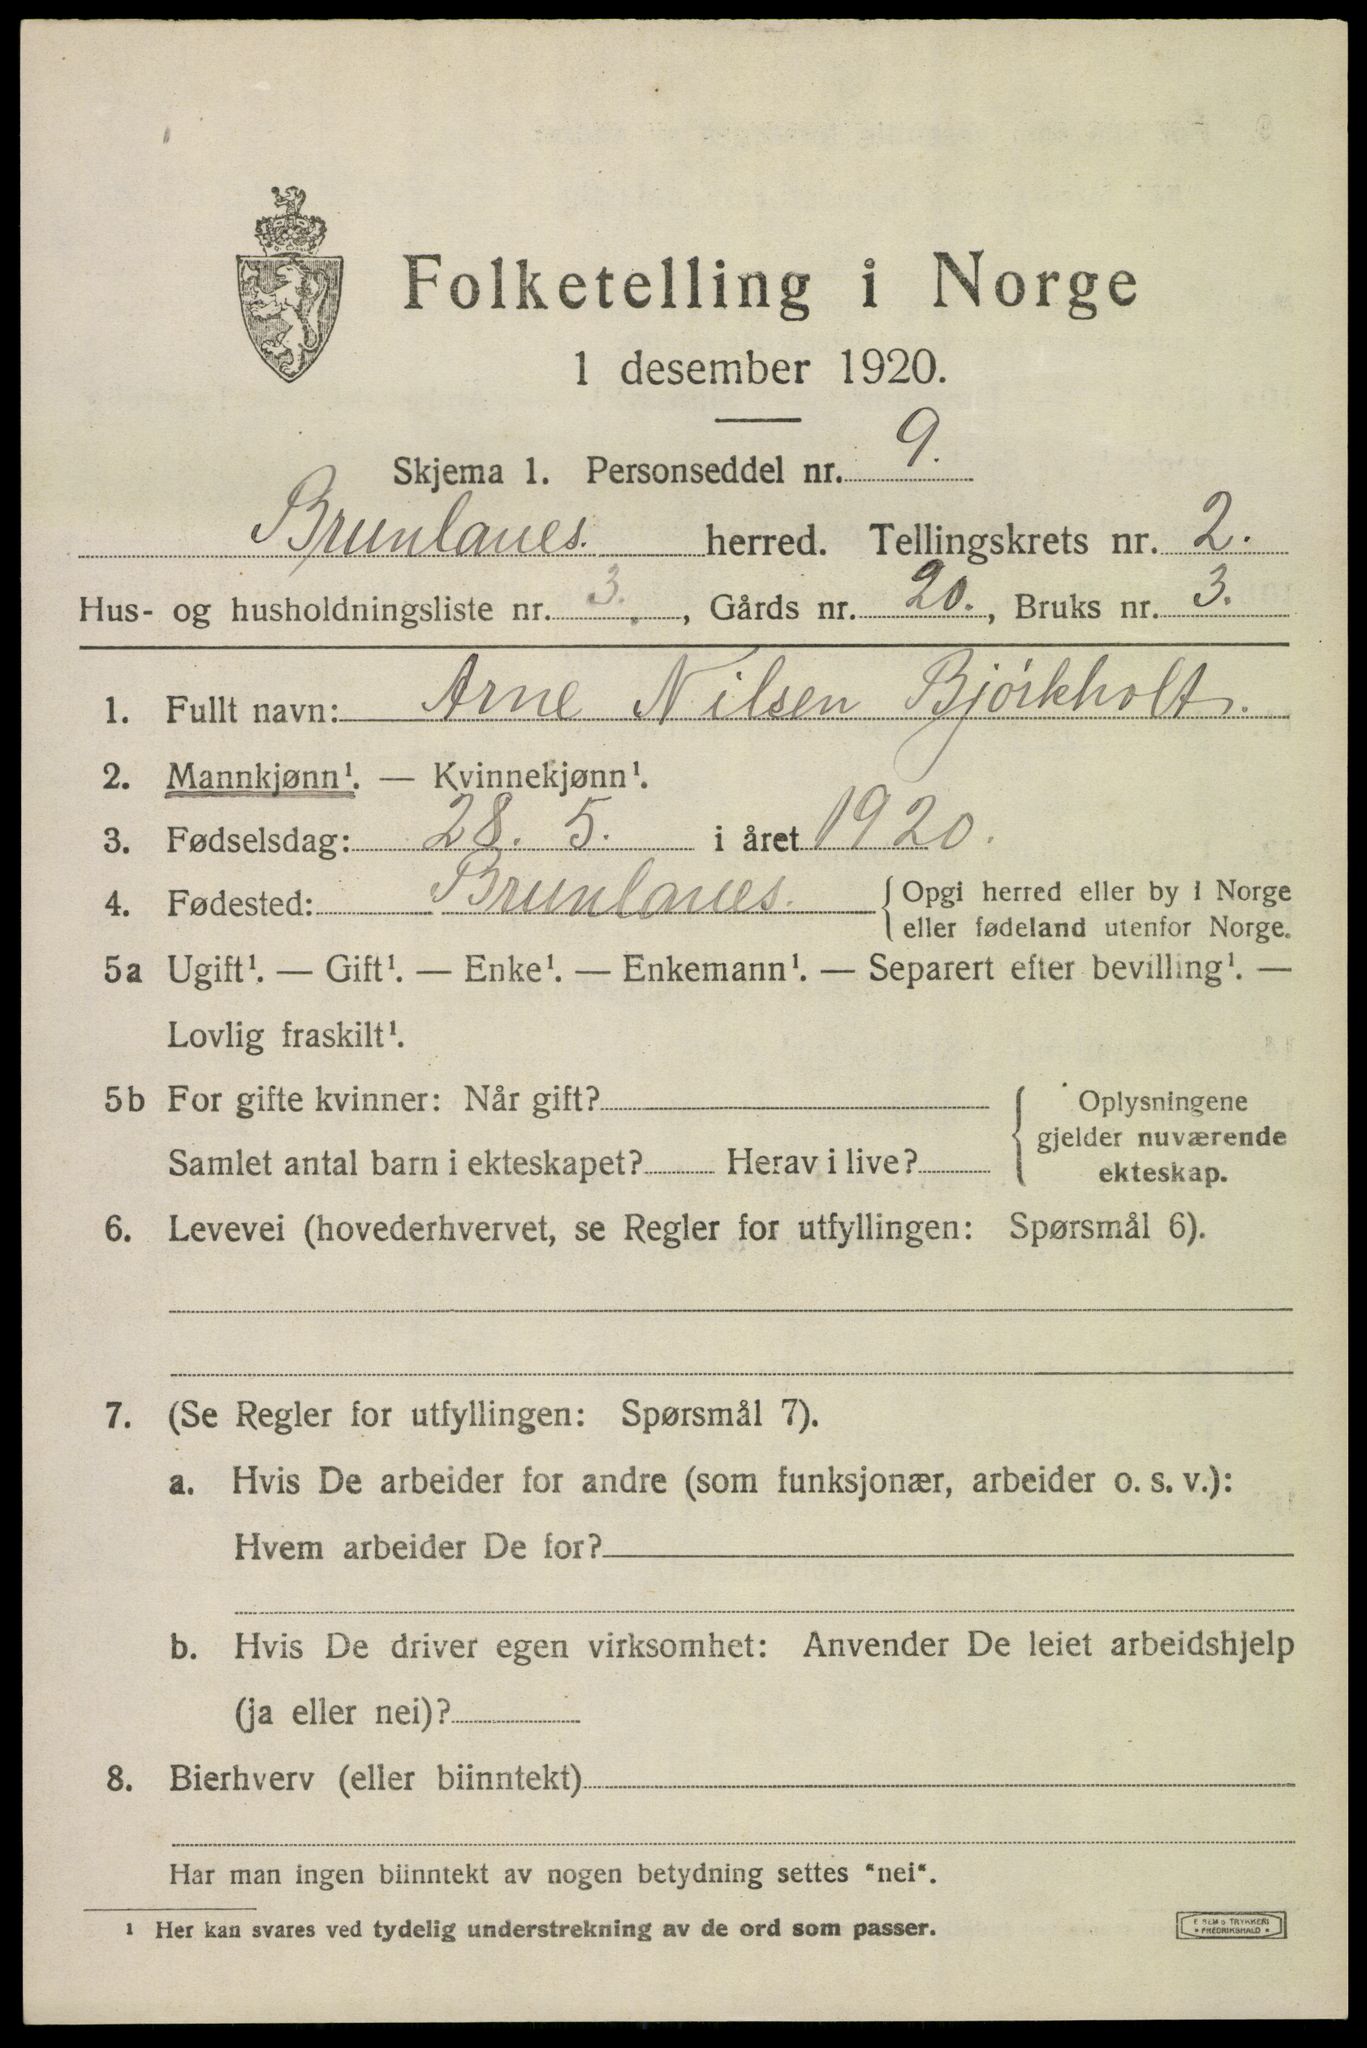 Folketelling i Norge
1 desember 1920.
Skjema 1. Personseddel nr. 9.
Brunlanes. herred. Tellingskrets nr. 2.
Hus- og husholdningsliste nr. 3., Gårds nr. 20., Bruks nr. 3.
1. Fullt navn: Arne Nilsen Bjørkholt.
2. Mannkjønn¹. — Kvinnekjønn¹.
3. Fødselsdag: 28. 5. i året 1920.
4. Fødested: Brunlanes. { Opgi herred eller by i Norge
eller fødeland utenfor Norge.
5a Ugift¹. — Gift¹. — Enke¹. — Enkemann¹. — Separert efter bevilling¹. —
Lovlig fraskilt¹.
5b For gifte kvinner: Når gift?
Samlet antal barn i ekteskapet? Herav i live?
{ Oplysningene
gjelder nuværende
ekteskap.
6. Levevei (hovederhvervet, se Regler for utfyllingen: Spørsmål 6).
7. (Se Regler for utfyllingen: Spørsmål 7).
a. Hvis De arbeider for andre (som funksjonær, arbeider o. s. v.):
Hvem arbeider De for?
b. Hvis De driver egen virksomhet: Anvender De leiet arbeidshjelp
(ja eller nei)?
8. Bierhverv (eller biinntekt)
Har man ingen biinntekt av nogen betydning settes "nei".
¹ Her kan svares ved tydelig understrekning av de ord som passer.
TRYKKERI
* FREDRIKSHALD *